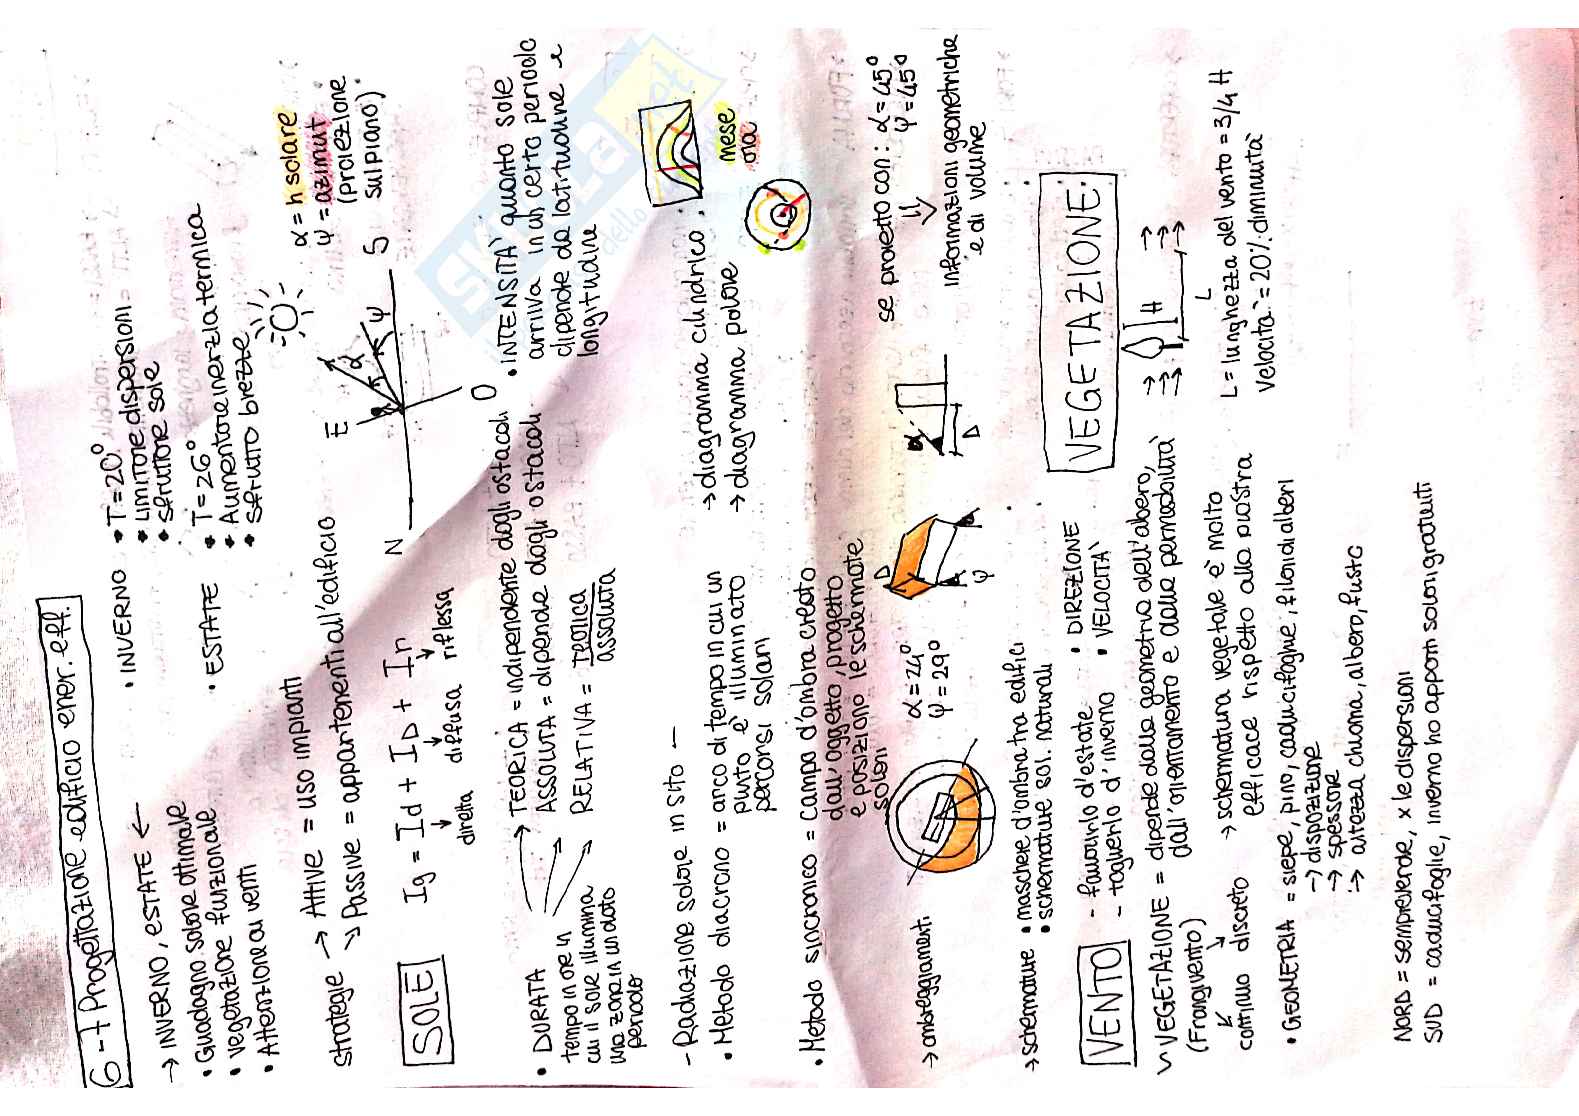 6-7 Progettazione edificio ener. eff.
→ INVERNO, ESTATE ←
• Guadagno solare ottimale
• vegetazione funzionale
• Attenzione ai venti
• INVERNO
• T=20°
• Limitare dispersioni
• sfruttare sole
• ESTATE
• T=26°
• Aumentare inerzia termica
• sfrutto brezze
strategie → Attive = uso impianti
↘ Passive = appartenenti all'edificio
SOLE
Ig = Id + ID + Ir
diretta diffusa riflessa
N E S O
α ψ
α = h solare
ψ = azimut
(proiezione
sul piano)
• DURATA
tempo in ore in
cui il sole illumina
una zona in un dato
periodo
→ TEORICA = indipendente dagli ostacoli
ASSOLUTA = dipende dagli ostacoli
RELATIVA = teorica
assoluta
• INTENSITÀ quanto sole
arriva in un certo periodo
dipende da latitudine e
longitudine
- Radiazione solare in sito -
• Metodo diacrono = arco di tempo in cui un
punto è illuminato
percorsi solari
→ diagramma cilindrico
→ diagramma polare
mese
ora
• Metodo sincronico = campo d'ombra creato
dall'oggetto, progetto
e posiziono le schermate
solari
→ ombreggiamenti
α = 24°
ψ = 29°
Δ
ψ
α
Δ
se proietto con: α = 45°
ψ = 45°
informazioni geometriche
e di volume
→ schermature • maschere d'ombra tra edifici
• schermature sol. naturali
VENTO
- favorirlo d'estate
- toglierlo d'inverno
• DIREZIONE
• VELOCITÀ
VEGETAZIONE
VEGETAZIONE = dipende dalla geometria dell'albero,
(Frangivento) dall'orientamento e dalla permeabilità
continuo discreto
→ schermatura vegetale è molto
efficace rispetto alla piastra
H
L
L = lunghezza del vento = 3/4 H
Velocità = 20% diminuita
• GEOMETRIA = siepe, pino, caducifoglie, filari di alberi
→ disposizione
→ spessore
→ altezza chioma, albero, fusto
NORD = sempreverde, x le dispersioni
SUD = caducifoglie, inverno ho apporti solari gratuiti